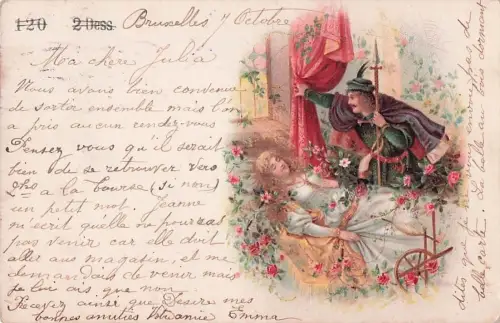 120 2 Dess.
Bruxelles 7 Octobre
Ma chère Julia
Nous avons bien convenu
de sortir ensemble mais l'on
a pris aucun rendez-vous
Pensez vous qu'il serait
bien de se retrouver vers
a la bourse (si non)
un petit mot. Jeanne
m'écrit qu'elle ne pourras
pas venir car elle doit
aller aus magasin, et me
demandais de venir mais
je lui ais que non.
Recevez ainsi que Desire mes
bonnes amitiés Votre amie Emma
dites que je
belle carte. La belle au bois dormant